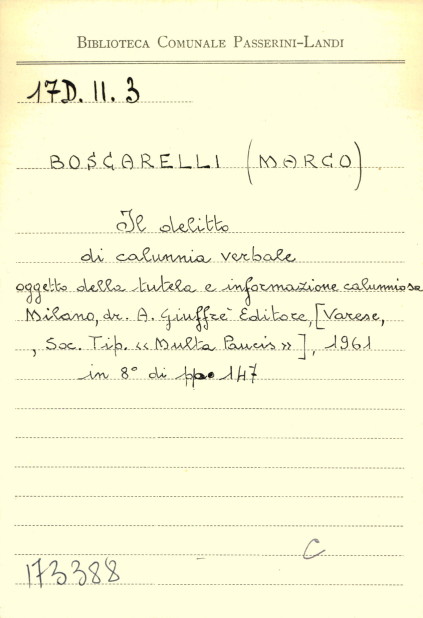 BIBLIOTECA COMUNALE PASSERINI-LANDI
17D. II. 3
BOSCARELLI (MARCO)
Il delitto
di calunnia verbale
oggetto della tutela e informazione calunniosa
Milano, dr. A. Giuffrè Editore, [Varese,
, Soc. Tip. « Multa Paucis » ], 1961
in 8° di pp. 147
C
173388